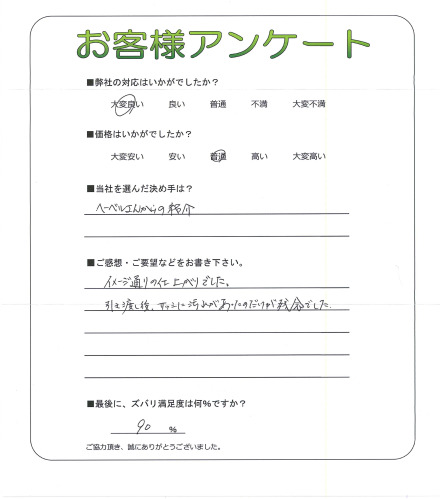 お客様アンケート
■弊社の対応はいかがでしたか？
大変良い 良い 普通 不満 大変不満
■価格はいかがでしたか？
大変安い 安い 普通 高い 大変高い
■当社を選んだ決め手は？
ヘーベルさんからの紹介
■ご感想・ご要望などをお書き下さい。
イメージ通りの仕上がりでした。
引き渡し後、サッシに汚れがあったのだけが残念でした。
■最後に、ズバリ満足度は何%ですか？
90 %
ご協力頂き、誠にありがとうございました。